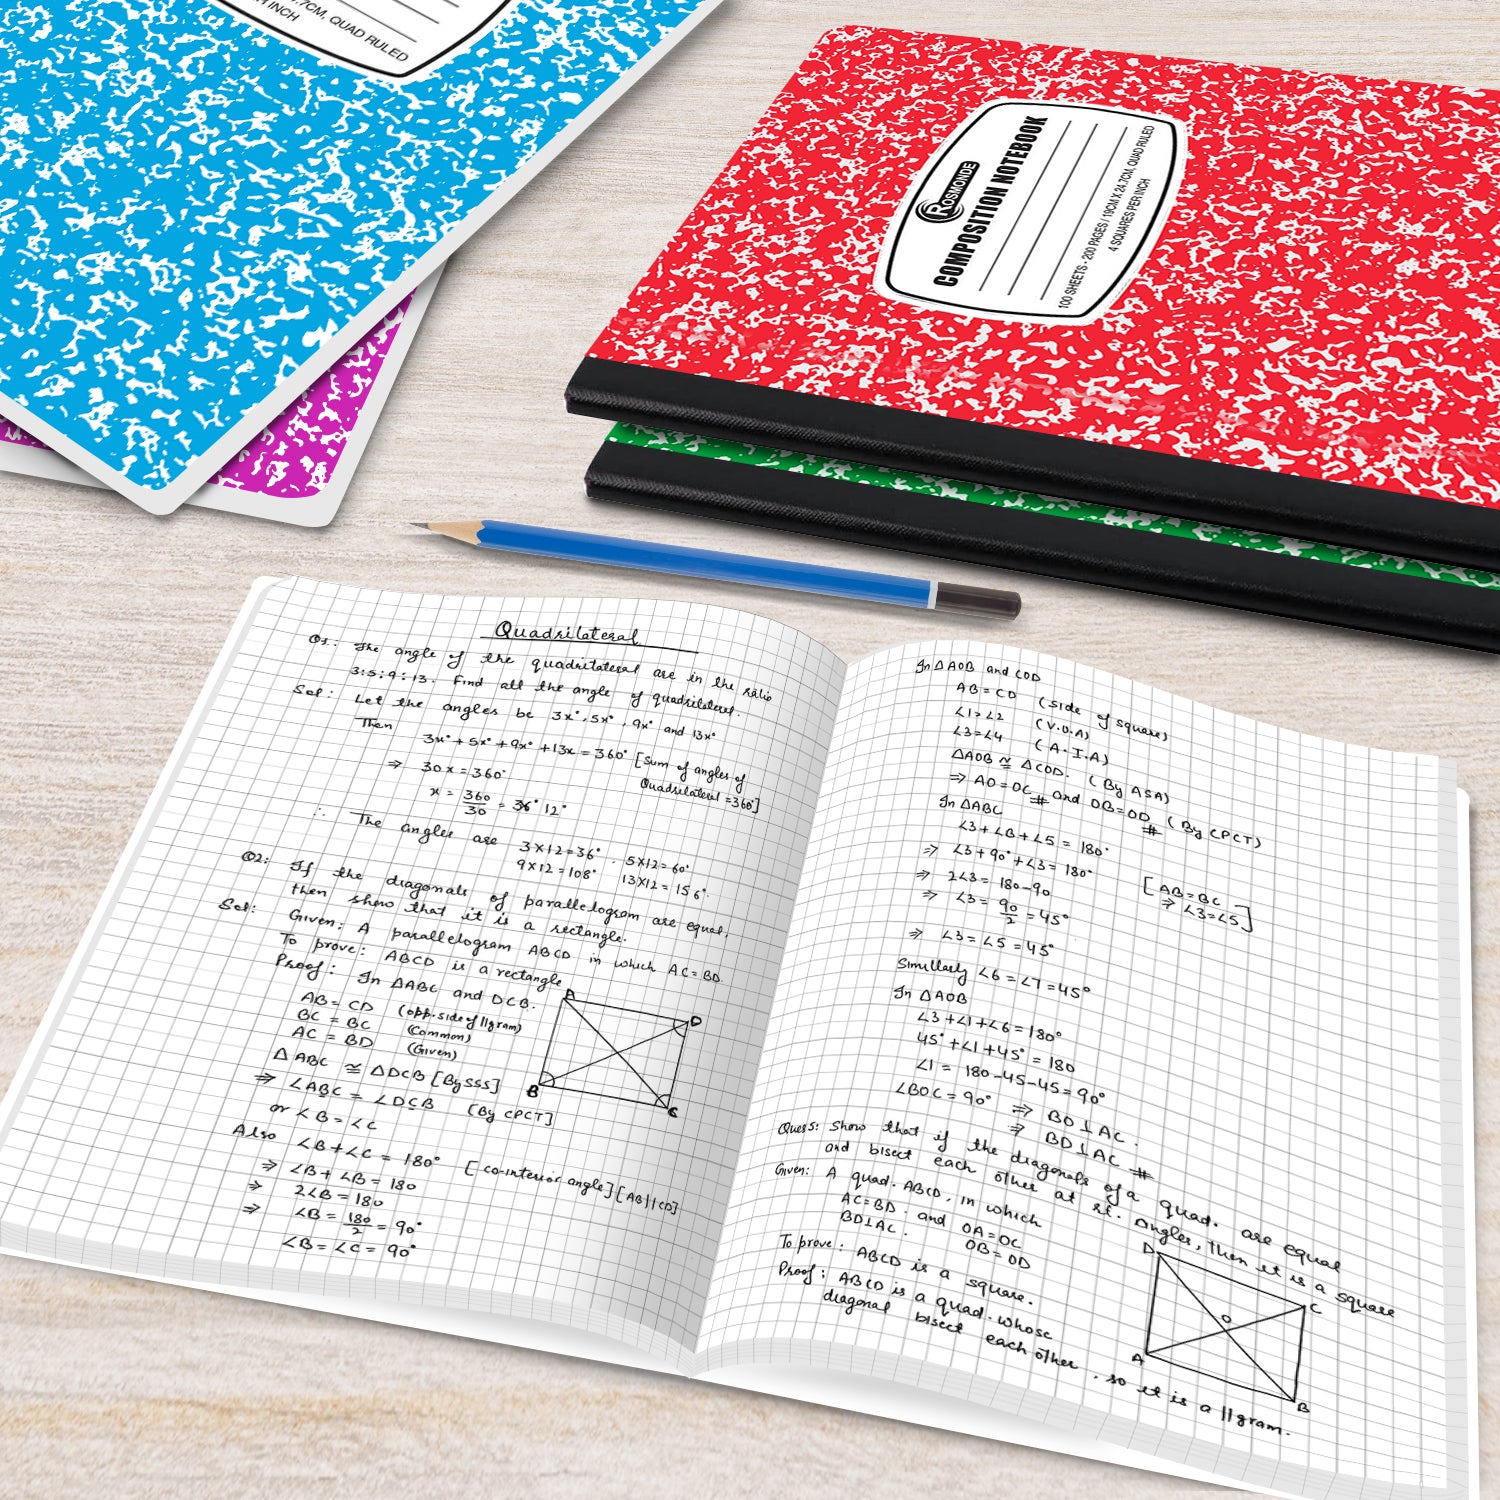 .7CM, QUAD RULED
R INCH
ROSMONDE
COMPOSITION NOTEBOOK
100 SHEETS - 200 PAGES / 19CM X 24.7CM, QUAD RULED
4 SQUARES PER INCH
Quadrilateral
Q1: The angle of the quadrilateral are in the ratio
3:5:9:13. Find all the angle of quadrilateral.
Sol: Let the angles be 3x°, 5x°, 9x° and 13x°
Then
3x° + 5x° + 9x° + 13x = 360° [Sum of angles of
Quadrilateral = 360°]
⇒ 30x = 360°
x = 360/30 = 36° 12°
∴ The angles are 3×12=36°, 5×12=60°
9×12=108° 13×12=156°.
Q2: If the diagonals of parallelogram are equal,
then show that it is a rectangle.
Sol: Given: A parallelogram ABCD in which AC=BD.
To prove: ABCD is a rectangle
Proof: In ΔABC and DCB.
AB = CD (opp. side of llgram)
BC = BC (Common)
AC = BD (Given)
Δ ABC ≅ ΔDCB [By SSS]
⇒ ∠ABC = ∠DCB (By CPCT]
or ∠B = ∠C
Also ∠B+∠C = 180° [co-interior angle] [AB||CD]
⇒ ∠B + ∠B = 180
⇒ 2∠B = 180
⇒ ∠B = 180/2 = 90°
∠B = ∠C = 90°
A
D
B
C
In Δ AOB and COD
AB = CD (side of square)
∠1=∠2 (V.O.A)
∠3=∠4 (A.I.A)
ΔAOB ≅ ΔCOD. (By ASA)
⇒ AO=OC # and OB=OD # (By CPCT)
In ΔABC
∠3+∠B+∠5 = 180°
⇒ ∠3+90°+∠3 = 180°
⇒ 2∠3 = 180-90 [AB=BC
⇒ ∠3 = 90/2 = 45° ⇒ ∠3=∠5]
⇒ ∠3 = ∠5 = 45°
Simillarly ∠6 = ∠7 = 45°
In ΔAOB
∠3+∠1+∠6 = 180°
45°+∠1+45° = 180
∠1 = 180-45-45 = 90°
∠BOC = 90° ⇒ BO ⊥ AC.
⇒ BD ⊥ AC #
Ques: Show that if the diagonals of a quad. are equal
and bisect each other at rt. angles, then it is a square
Given: A quad. ABCD, in which
AC=BD. and OA=OC
BD⊥AC. OB=OD
To prove: ABCD is a square.
Proof: ABCD is a quad. whose
diagonal bisect each other, so it is a llgram.
D
C
O
A
B